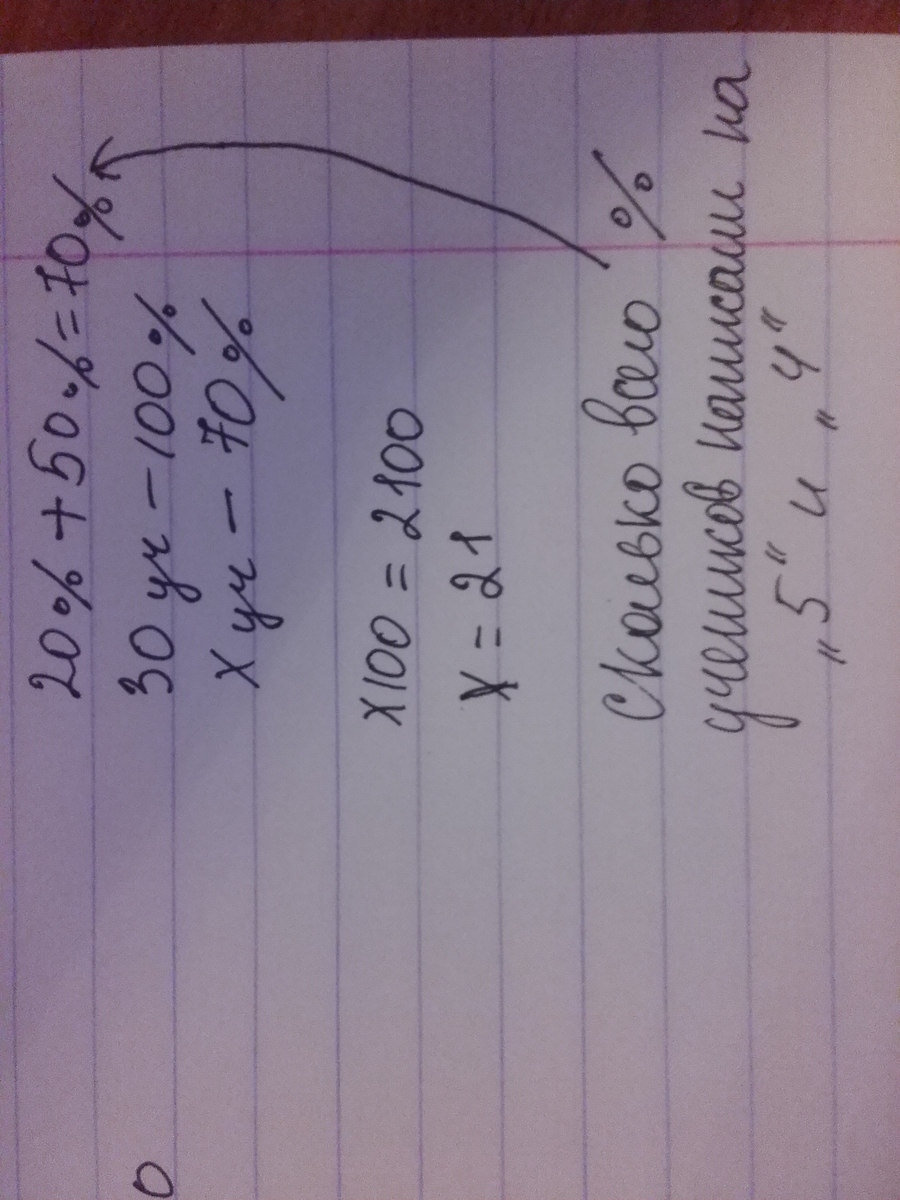 20% + 50% = 70%
30 уч - 100%
х уч - 70%
х100 = 2100
х = 21
Сколько всего %
учеников написали на
„5" и „4"